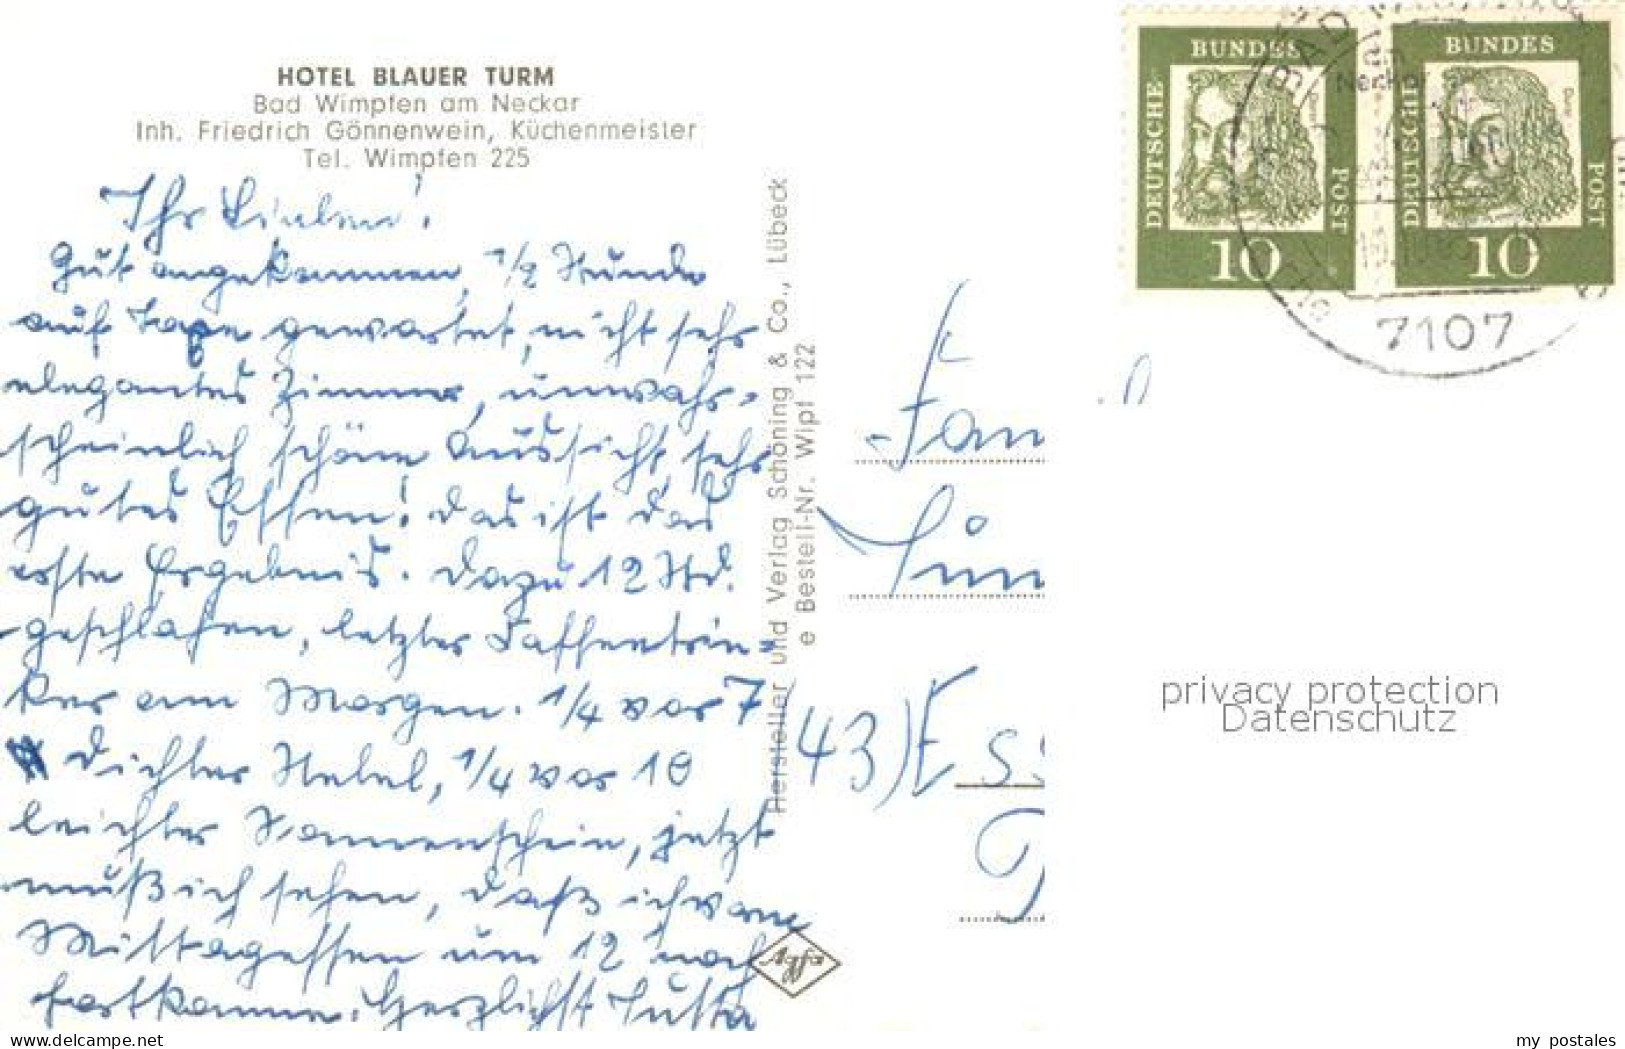 HOTEL BLAUER TURM
Bad Wimpfen am Neckar
Inh. Friedrich Gönnenwein, Küchenmeister
Tel. Wimpfen 225
Ihr Lieben!
Gut angekommen, 1/2 Stunde
auf gewartet, nicht sehr
elegantes Zimmer, unwahr-
scheinlich schöne Aussicht, sehr
gutes Essen! Das ist das
erste Ergebnis. Dazu 12 Std.
geschlafen, letzter Kaffeetrin-
ker am Morgen. 1/4 vor 7
dichter Nebel, 1/4 vor 10
leichter Sonnenschein, jetzt
muß ich sehen, daß ich vom
Mittagessen um 12 noch
fortkomme. Herzlichst
Hersteller und Verlag Schöning & Co., Lübeck
e Bestell-Nr. Wipf 122
Agfa
DEUTSCHE BUNDES POST
10
DEUTSCHE BUNDES POST
10
BAD WIMPFEN
Neckar
7107
Fam
43) Ess
privacy protection
Datenschutz
delcampe.net
my_postales